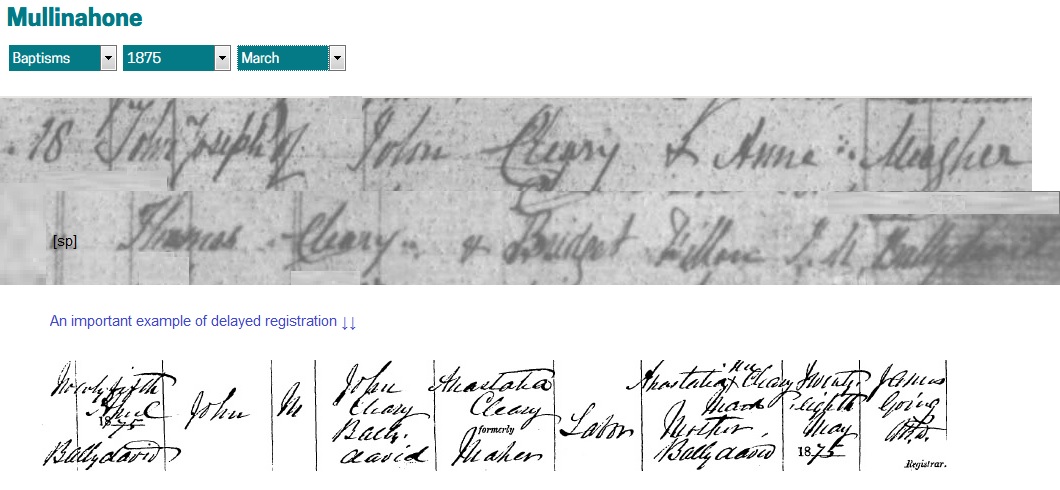 Mullinahone
Baptisms 1875 March
18 John Joseph of John Cleary & Anne Meagher
[sp] Thomas Cleary & Bridget Fillon J. M. Ballydavid
An important example of delayed registration ↓↓
John Anastatia Anastatia Cleary Twenty James
fifth Cleary Cleary her eighth Going
April John M Bally formerly Labor Mark May
1875 david Maher Mother 1875
Ballydavid Ballydavid Registrar.